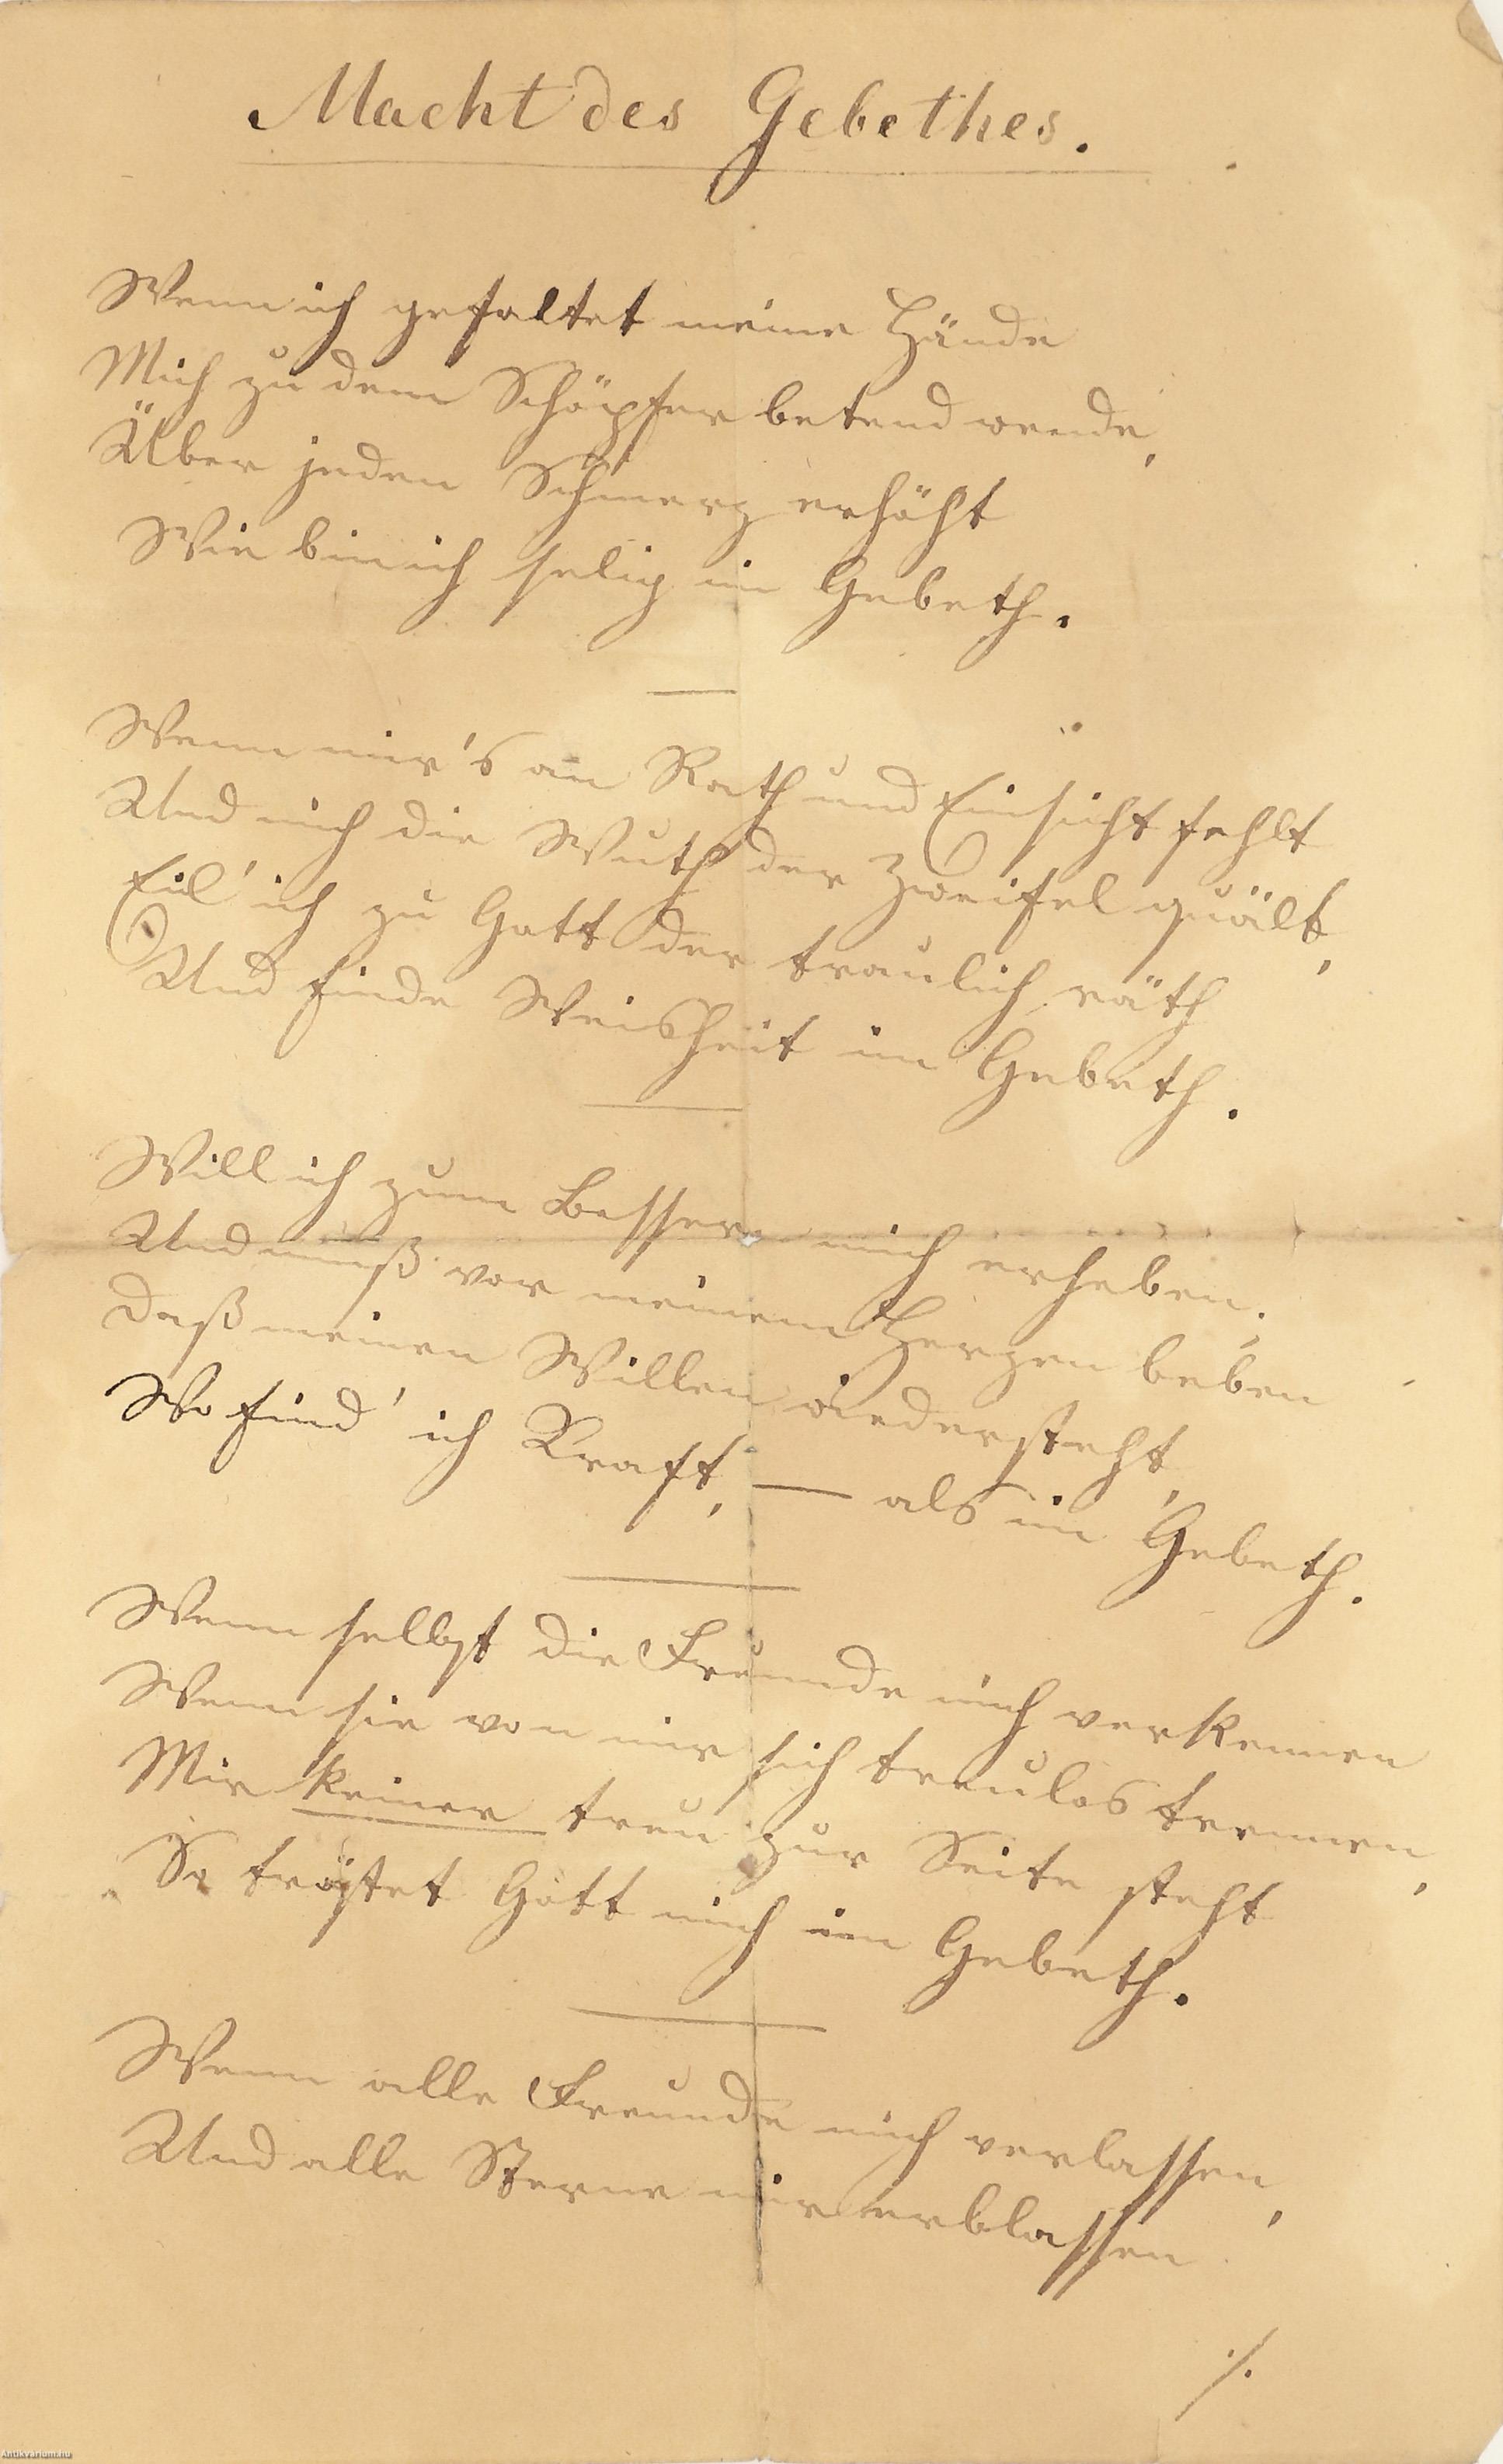 Macht des Gebethes.
Wenn ich gefaltet meine Hände
Mich zu dem Schöpfer betend wende,
Über jeden Schmerz erhöht
Wie bin ich selig im Gebeth.
Wenn mir's an Rath und Einsicht fehlt
Und mich die Wuth der Zweifel quält,
Eil' ich zu Gott der traulich räth
Und finde Weisheit im Gebeth.
Will ich zum Bessern mich erheben,
Und muß vor meinem Herzen beben
Daß meinen Willen wiedersteht,
Wo find' ich Kraft, — als im Gebeth.
Wenn selbst die Freunde mich verkennen
Wenn sie von mir sich treulos trennen,
Mir keiner treu zur Seite steht
So tröstet Gott mich im Gebeth.
Wenn alle Freunde mich verlassen,
Und alle Sterne mir erblassen
./.
Antikvarium.hu